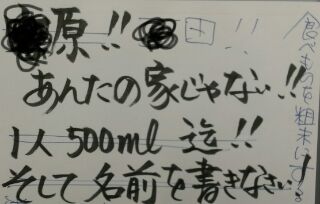 原!!
あんたの家じゃない!!
1人500ml迄!!
そして名前を書きなさい!
食べものを粗末にする